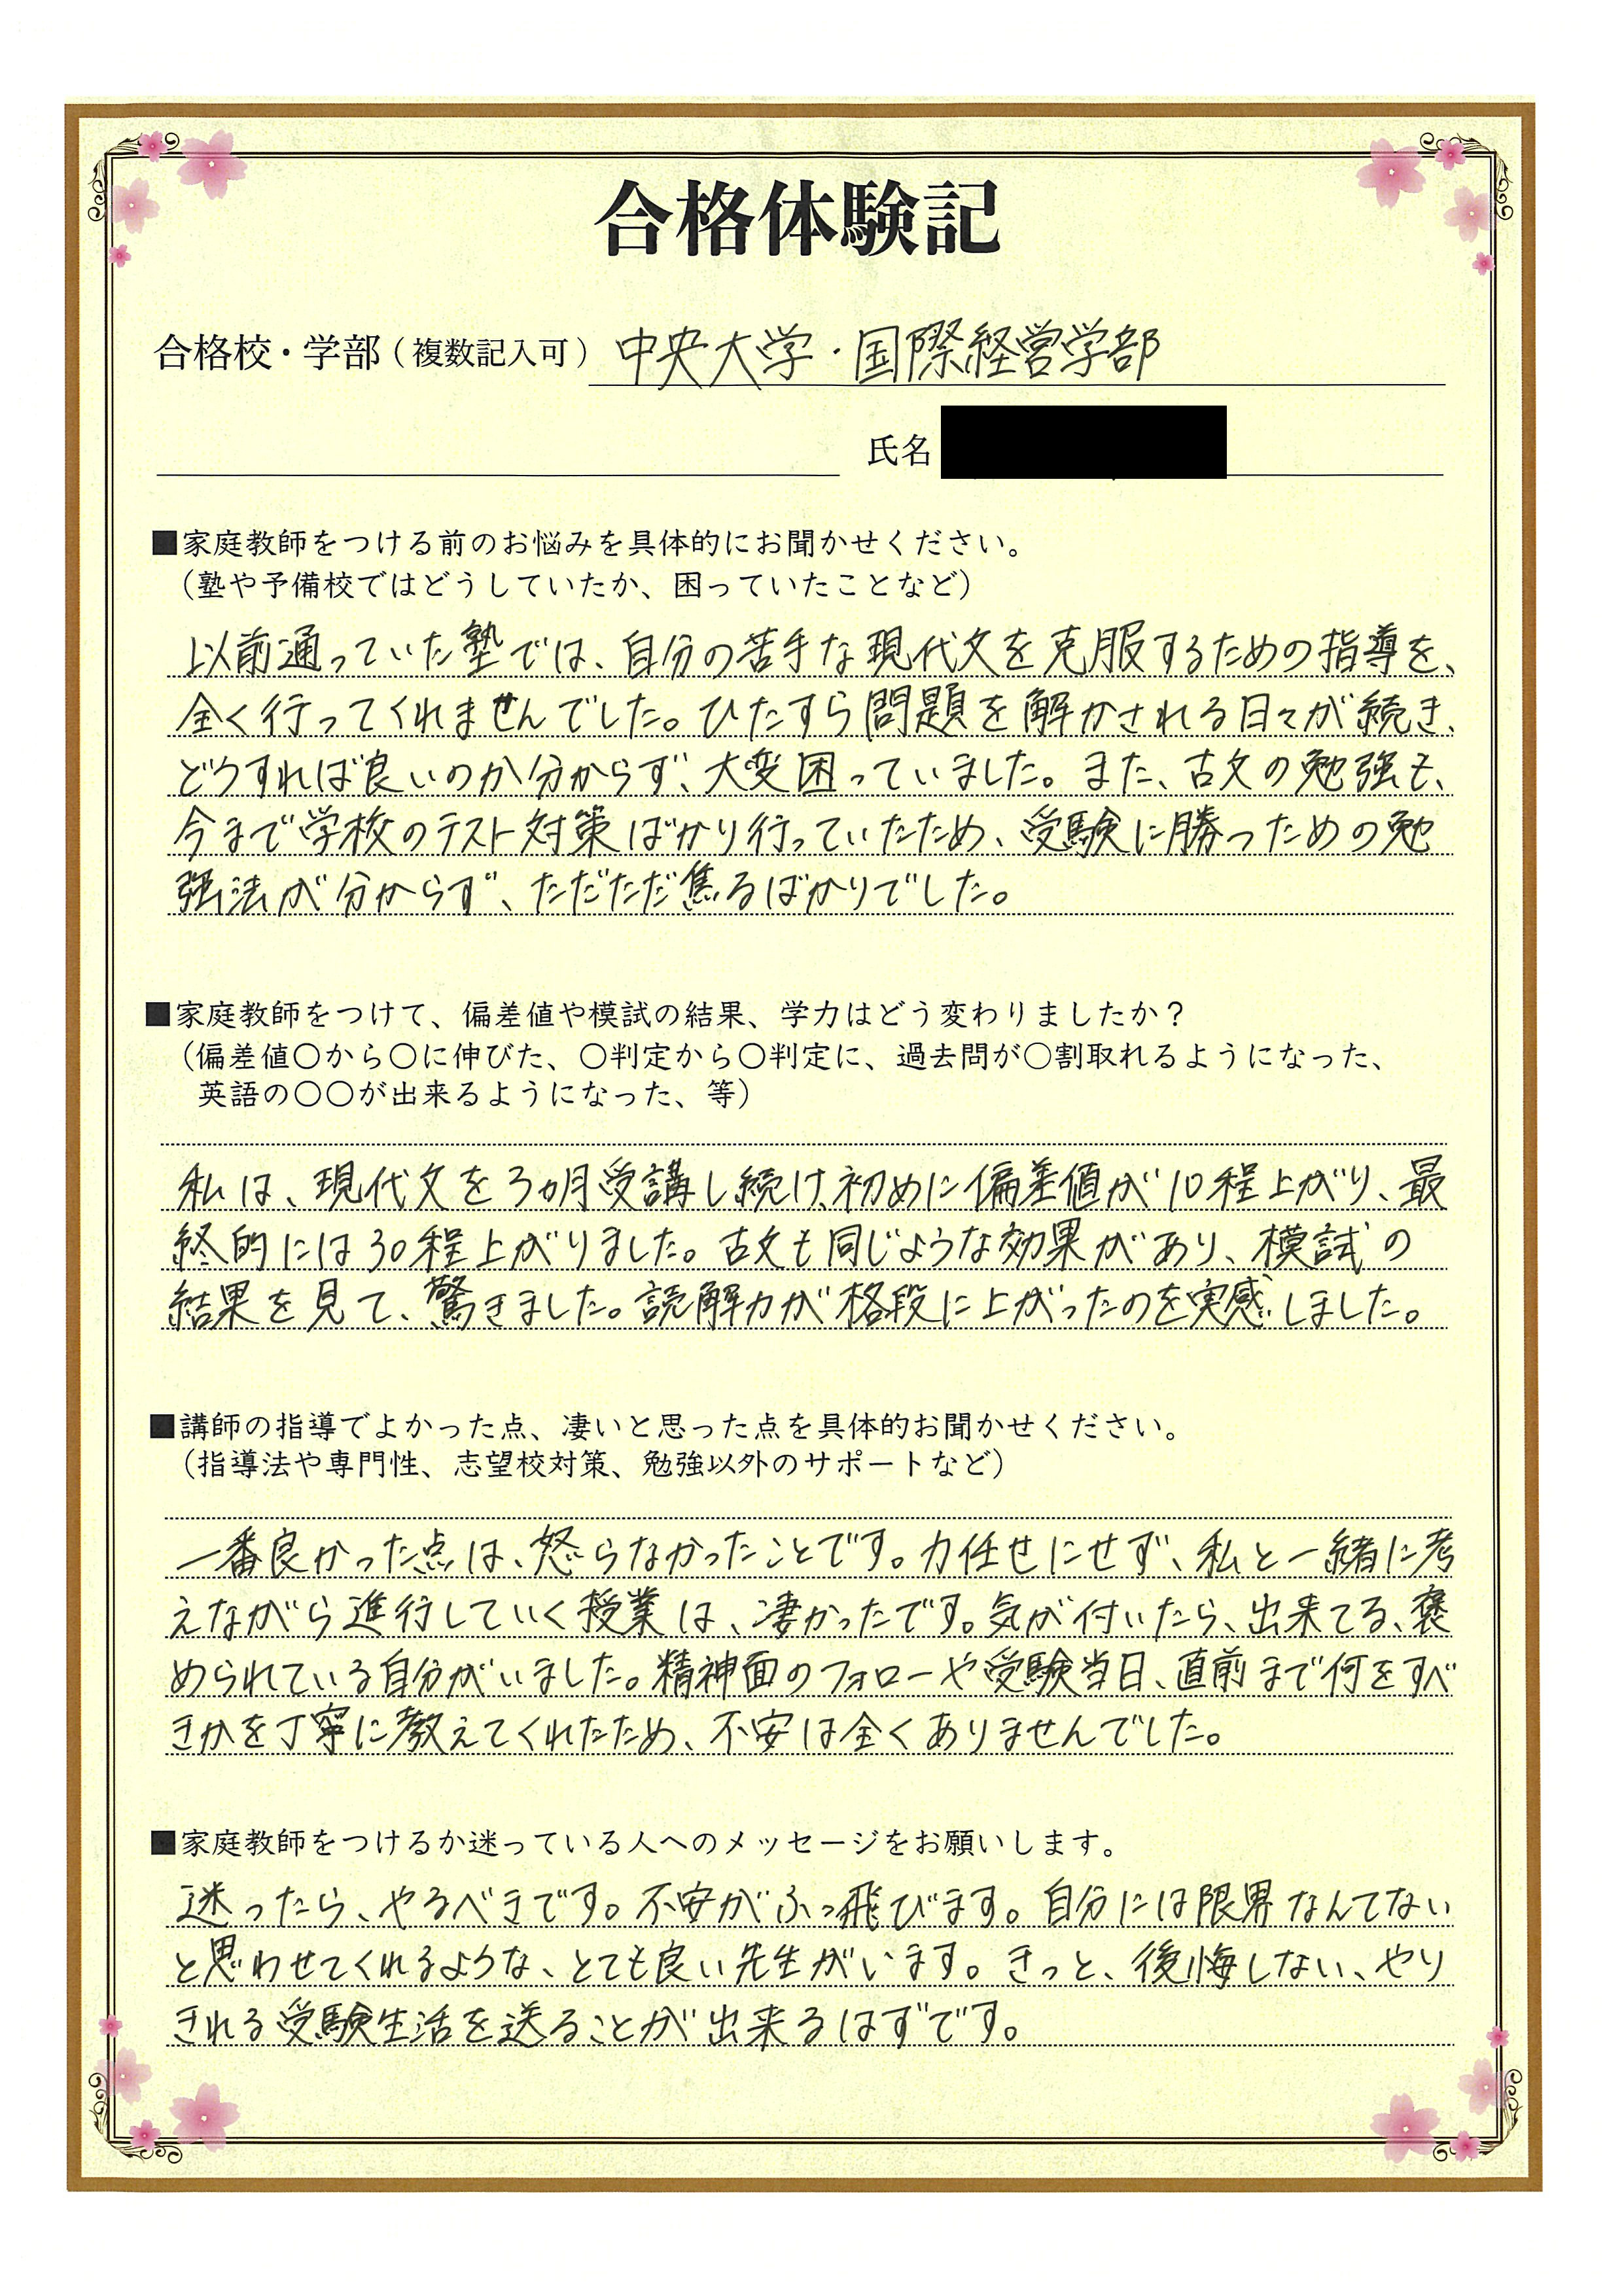 合格体験記
合格校・学部（複数記入可） 中央大学・国際経営学部
氏名
■家庭教師をつける前のお悩みを具体的にお聞かせください。
（塾や予備校ではどうしていたか、困っていたことなど）
以前通っていた塾では、自分の苦手な現代文を克服するための指導を、
全く行ってくれませんでした。ひたすら問題を解かされる日々が続き、
どうすれば良いのか分からず、大変困っていました。また、古文の勉強も、
今まで学校のテスト対策ばかり行っていたため、受験に勝つための勉
強法が分からず、ただただ焦るばかりでした。
■家庭教師をつけて、偏差値や模試の結果、学力はどう変わりましたか？
（偏差値〇から〇に伸びた、〇判定から〇判定に、過去問が〇割取れるようになった、
英語の〇〇が出来るようになった、等）
私は、現代文を3ヵ月受講し続け、初めに偏差値が10程上がり、最
終的には30程上がりました。古文も同じような効果があり、模試の
結果を見て、驚きました。読解力が格段に上がったのを実感しました。
■講師の指導でよかった点、凄いと思った点を具体的お聞かせください。
（指導法や専門性、志望校対策、勉強以外のサポートなど）
一番良かった点は、怒らなかったことです。力任せにせず、私と一緒に考
えながら進行していく授業は、凄かったです。気が付いたら、出来てる、褒
められている自分がいました。精神面のフォローや受験当日、直前まで何をすべ
きかを丁寧に教えてくれたため、不安は全くありませんでした。
■家庭教師をつけるか迷っている人へのメッセージをお願いします。
迷ったら、やるべきです。不安がふっ飛びます。自分には限界なんてない
と思わせてくれるような、とても良い先生がいます。きっと、後悔しない、やり
きれる受験生活を送ることが出来るはずです。